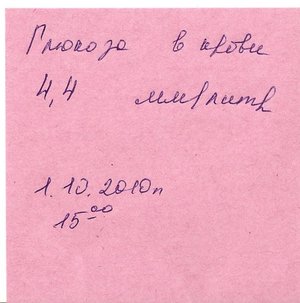 Глюкоза в крови
4,4 мм/литр
1.10.2010г
15⁰⁰